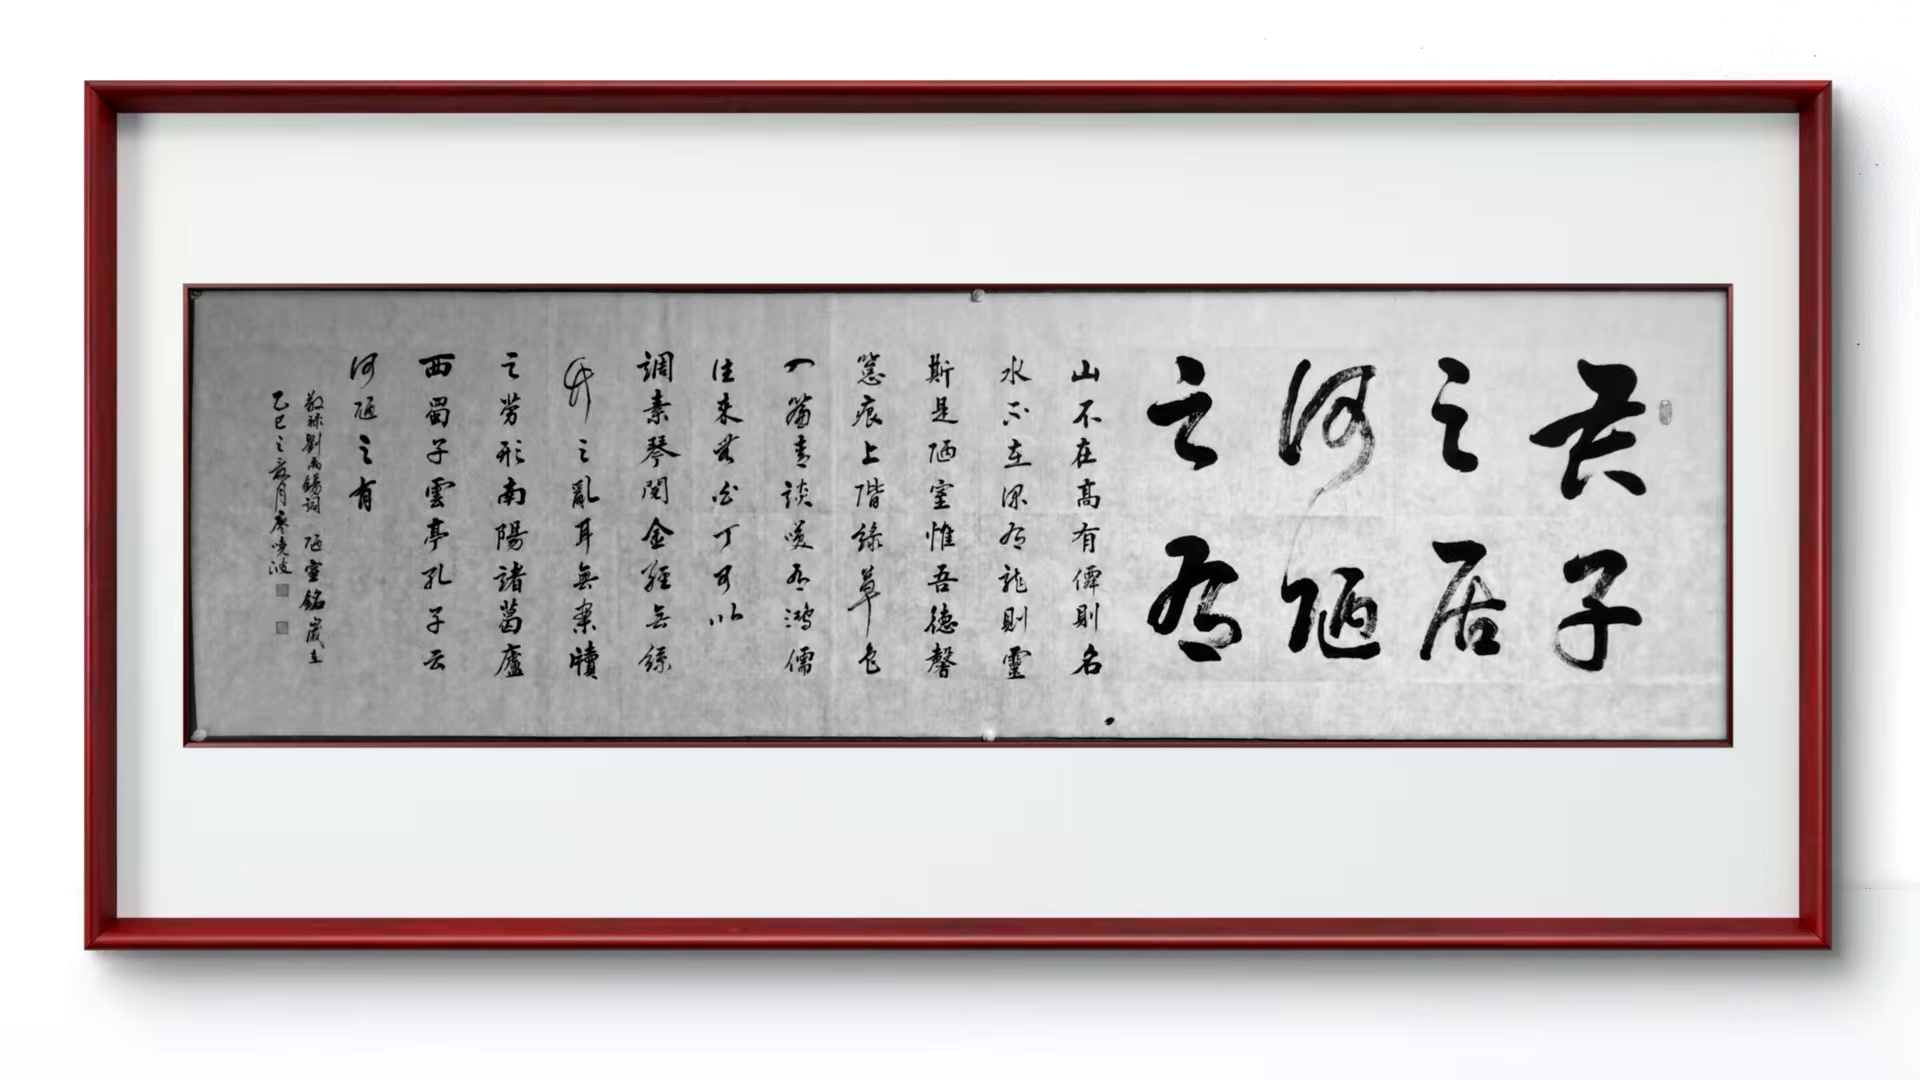 君子
之居
何陋
之有
山不在高有僊則名
水不在深有龍則靈
斯是陋室惟吾德馨
苔痕上階綠草色
入簾青談笑有鴻儒
往來無白丁可以
調素琴閱金經無絲
竹之亂耳無案牘
之勞形南陽諸葛廬
西蜀子雲亭孔子云
何陋之有
敬錄劉禹錫詞 陋室銘 歲在
乙巳之月廖曉波